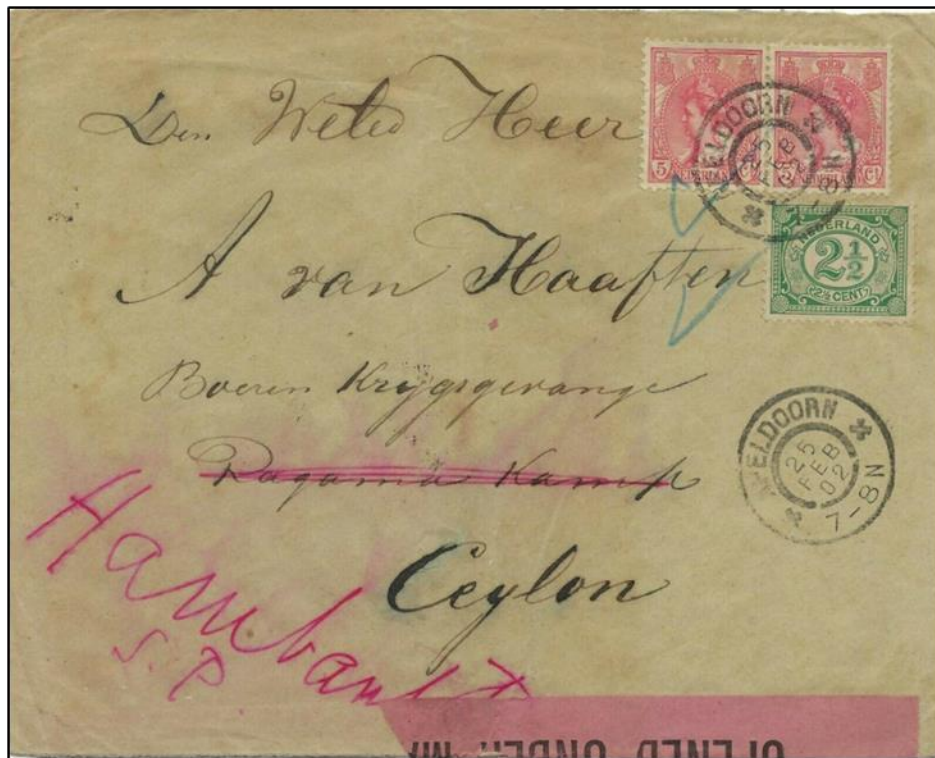 Den Weled Heer
A van Haaften
Boeren Krygsgevange
Ragama Kamp
Ceylon
Hambant
S.P.
5 Ct
5 NEDERLAND Ct
APELDOORN
25 FEB 02
7-8N
NEDERLAND
2½
2½ CENT
APELDOORN
25
FEB
02
7-8N
OPENED UNDER